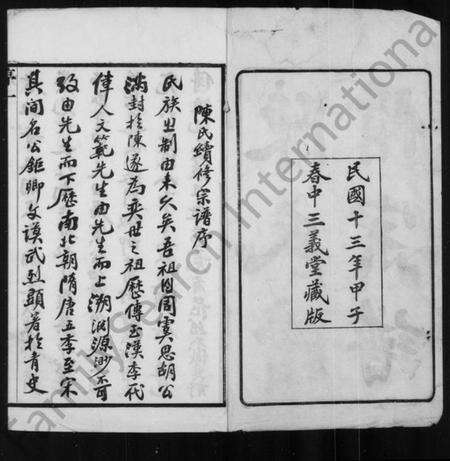 民國十三年甲子
春中三義堂藏版
陳氏續修宗譜序
民族之制由來久矣吾祖因周虞思胡公
滿封於陳遂為奕世之祖歷傳至漢季代
偉人文範先生由先生而上溯淵源渺不可
攷由先生而下歷南北朝隋唐五季至宋
其間名公鉅卿文謨武烈顯著於青史
FamilySearch International